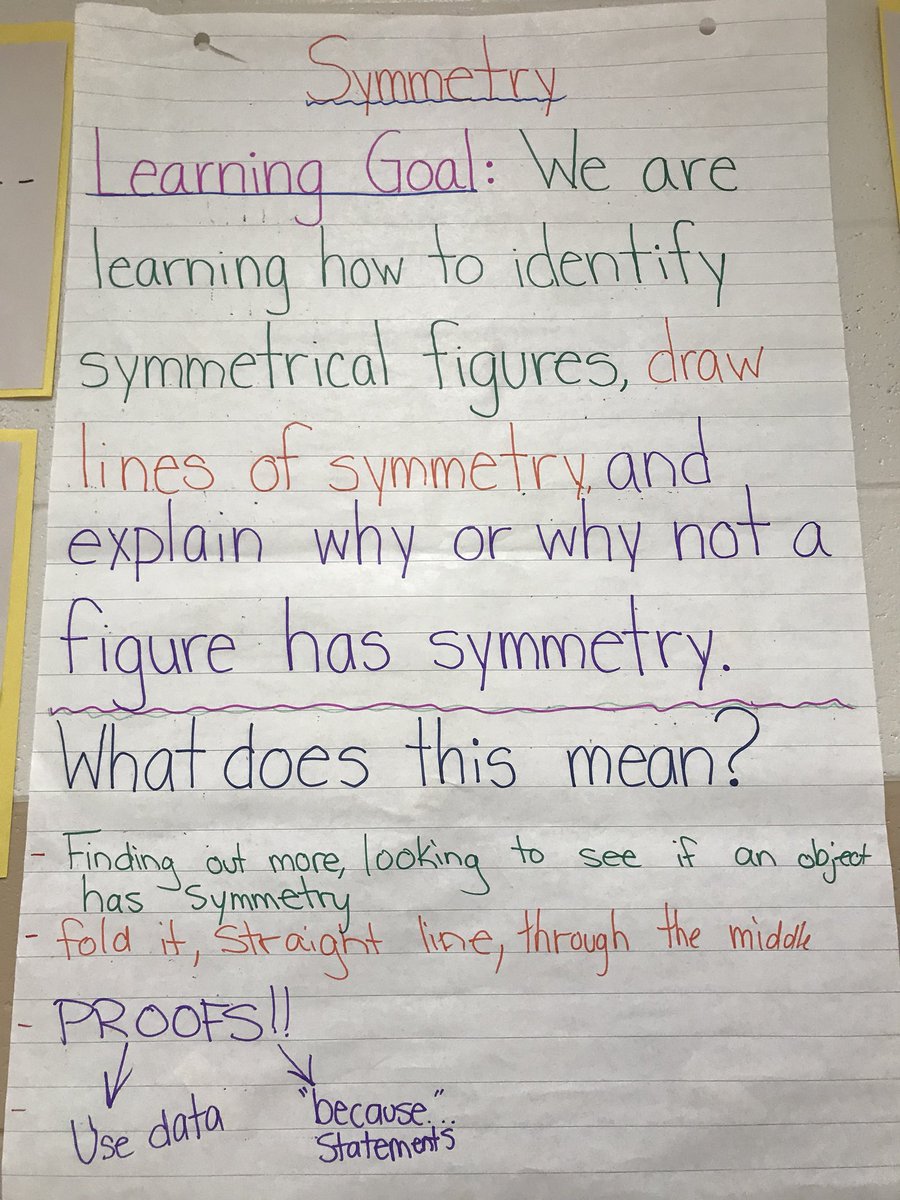 Symmetry
Learning Goal: We are
learning how to identify
symmetrical figures, draw
lines of symmetry, and
explain why or why not a
figure has symmetry.
What does this mean?
- Finding out more, looking to see if an object
has symmetry
- fold it, straight line, through the middle
- PROOFS!!
- Use data "because..."
Statements